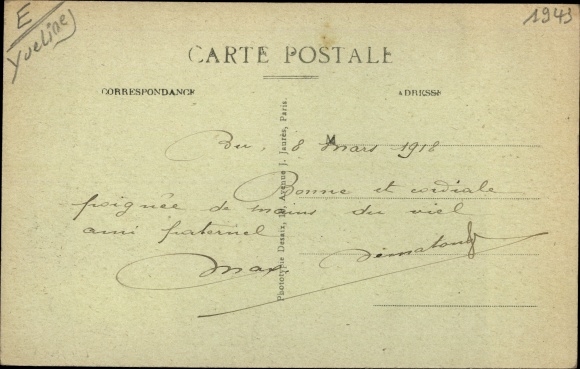 E
Yveline
1943
CARTE POSTALE
CORRESPONDANCE
ADRESSE
M
Bu, 8 Mars 1918
Bonne et cordiale
poignée de mains du viel
ami fraternel
Max
Phototypie Desaix, Avenue J. Jaurès, Paris.